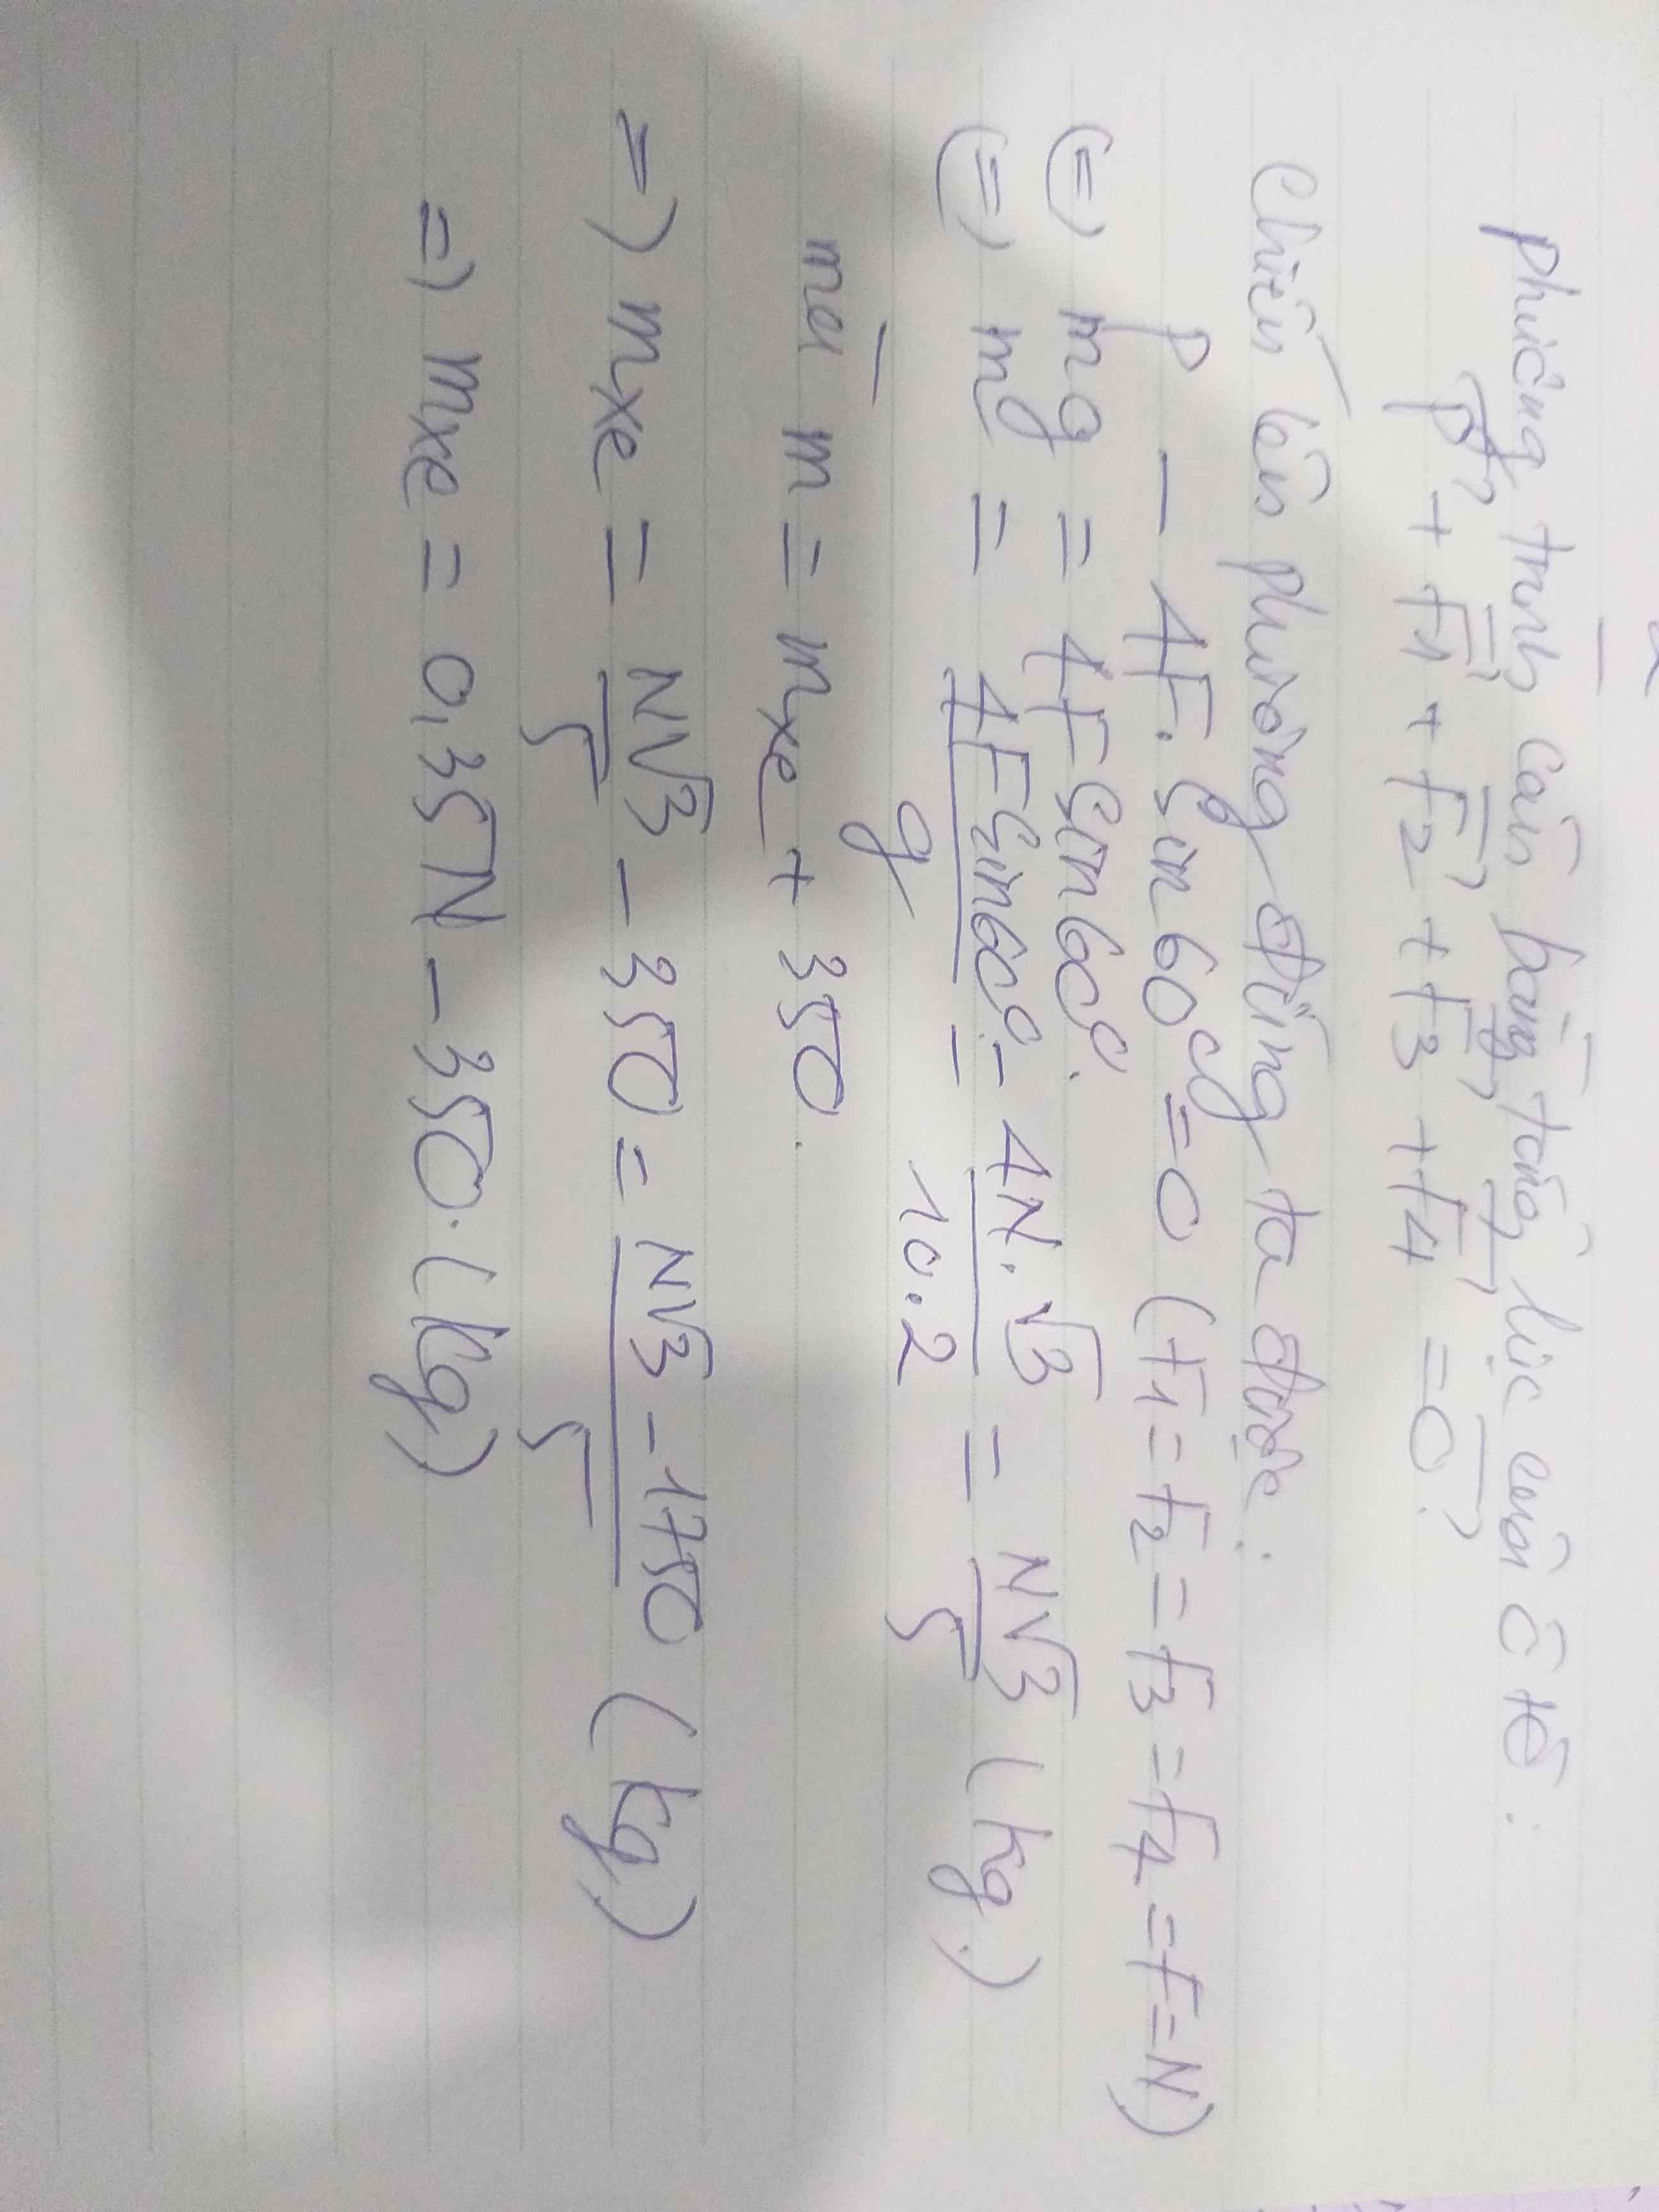 Phương trình cân bằng tổng lực của ô tô:
P⃗ + F⃗1 + F⃗2 + F⃗3 + F⃗4 = 0⃗
Chiếu lên phương đứng ta được:
P - 4F. sin 60° = 0 (F1 = F2 = F3 = F4 = F = N)
(=) mg = 4F sin 60°.
(=) m = 4F sin 60° / g = 4N.√3 / 10.2 = N√3 / 5 (kg)
mà m = mxe + 350.
=) mxe = N√3 / 5 - 350 = N√3 - 1750 / 5 (kg)
=) mxe = 0,35N - 350. (kg)